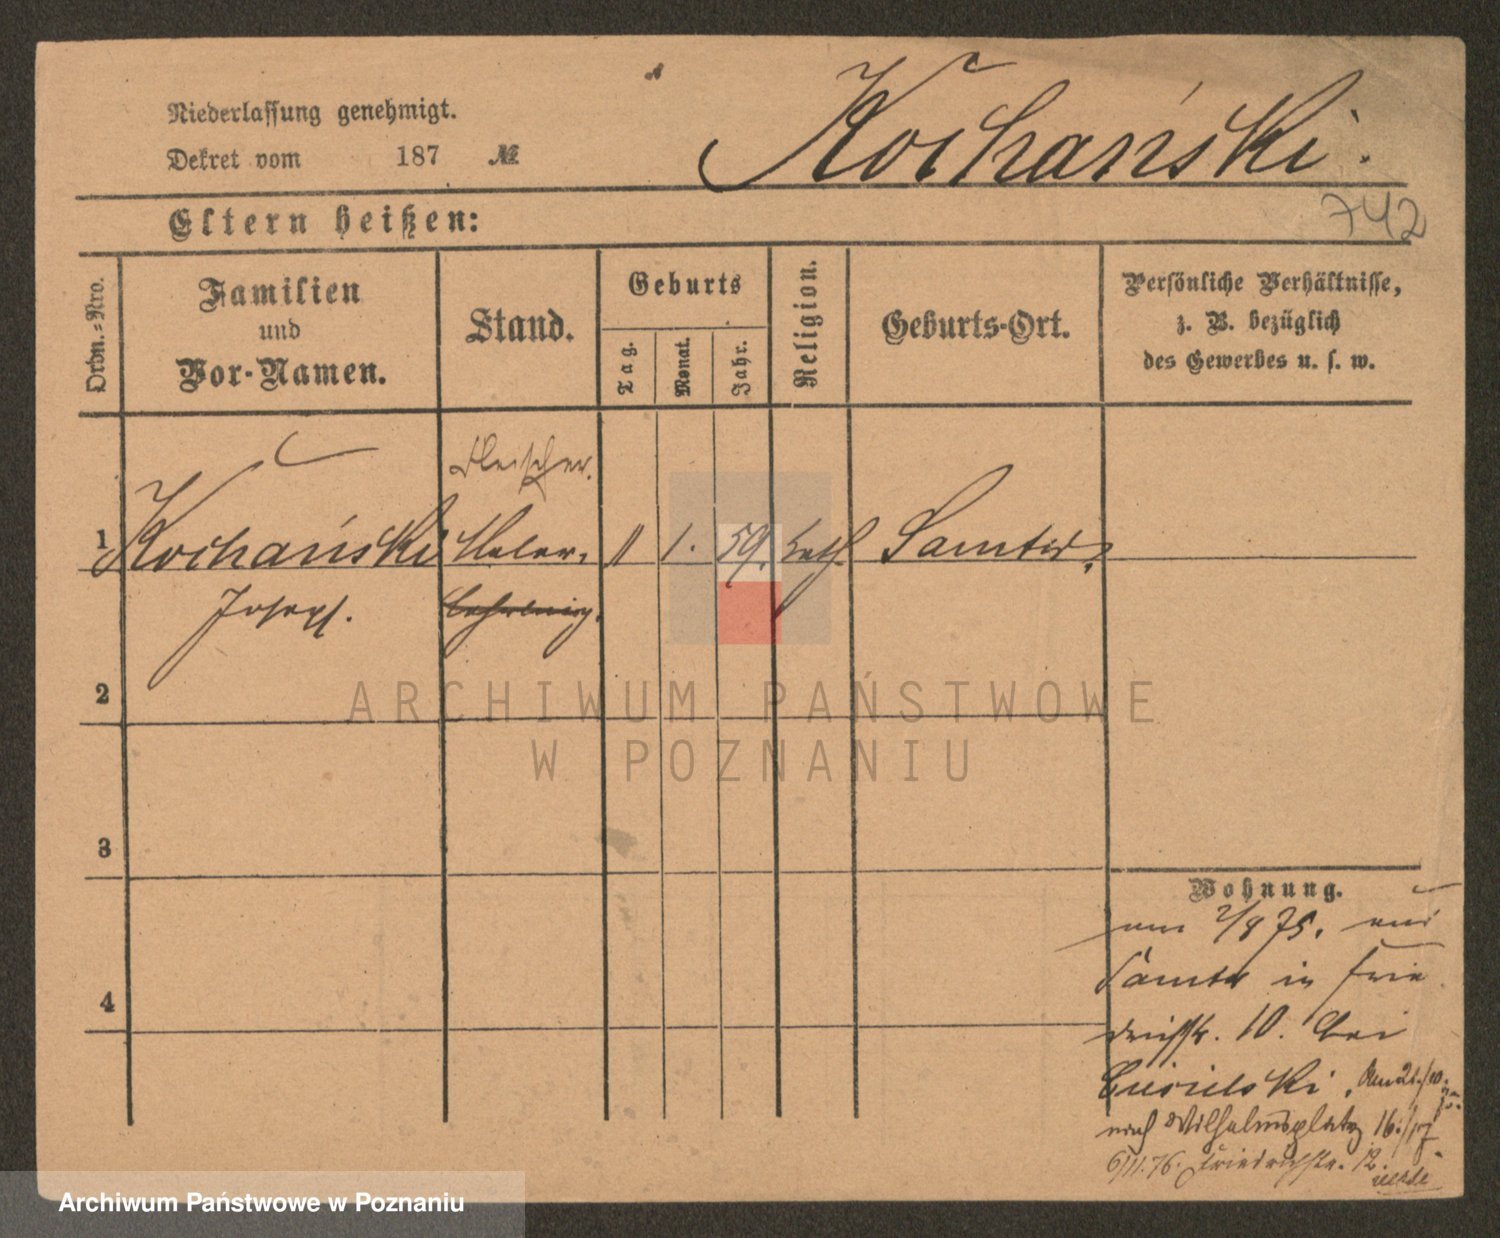 Niederlassung genehmigt.
Dekret vom 187 №
Kochański.
742
Eltern heißen:
Ordn.=Nro.
Familien
und
Vor-Namen.
Stand.
Geburts
Tag.
Monat.
Jahr.
Religion.
Geburts-Ort.
Persönliche Verhältnisse,
z. B. bezüglich
des Gewerbes u. s. w.
Fleischer.
1 Kochański Maler. 11 1. 59. kath. Samter
Joseph. Lehrling.
2
3
4
Wohnung.
am 2/9 75. aus
Samter in Frie
drichstr. 10. bei
Am 21./10. 75.
nach Wilhelmsplatz 16./17.
6/11.76. Friedrichstr. 12.
ARCHIWUM PAŃSTWOWE
W POZNANIU
Archiwum Państwowe w Poznaniu